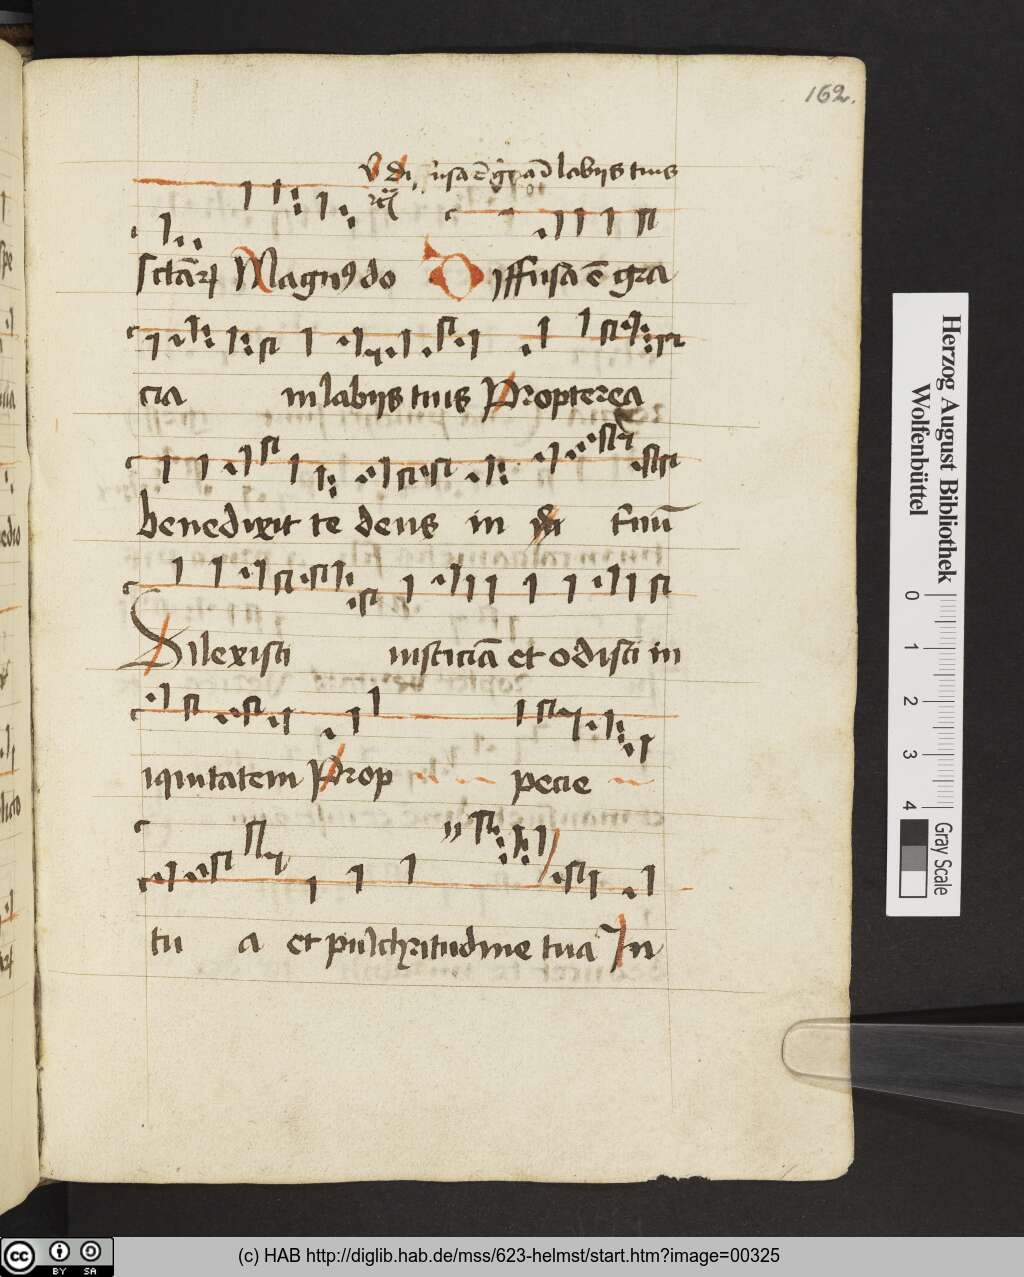 162.
V di usa ē gr̄a ī labijs tuis
sctārꝝ Magnꝰ do Diffusa ē gra
cia in labijs tuis Propterea
benedixit te deus in
Dilexisti iusticiā et odisti in
iquitatem Prop pecie
tu a et pulchritudine tua In
Herzog August Bibliothek
Wolfenbüttel
0 1 2 3 4
Gray Scale
cc BY SA
(c) HAB http://diglib.hab.de/mss/623-helmst/start.htm?image=00325